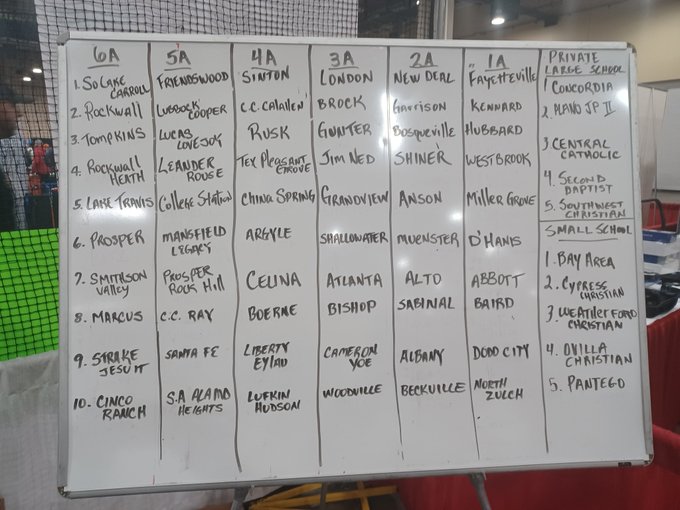 6A
1. SO LAKE CARROLL
2. ROCKWALL
3. TOMPKINS
4. ROCKWALL HEATH
5. LAKE TRAVIS
6. PROSPER
7. SMITHSON VALLEY
8. MARCUS
9. STRAKE JESUIT
10. CINCO RANCH
5A
FRIENDSWOOD
LUBBOCK COOPER
LUCAS LOVEJOY
LEANDER ROUSE
College Station
MANSFIELD LEGACY
PROSPER ROCK Hill
C.C. RAY
SANTA FE
S.A ALAMO HEIGHTS
4A
SINTON
C.C. CALALLEN
RUSK
TEX PLEASANT GROVE
CHINA SPRING
ARGYLE
CELINA
BOERNE
LIBERTY EYLAU
LUFKIN HUDSON
3A
LONDON
BROCK
GUNTER
JIM NED
GRANDVIEW
SHALLOWATER
ATLANTA
BISHOP
CAMERON YOE
WOODVILLE
2A
NEW DEAL
GARRISON
BOSQUEVILLE
SHINER
ANSON
MUENSTER
ALTO
SABINAL
ALBANY
BECKVILLE
1A
FAYETTEVILLE
KENNARD
HUBBARD
WESTBROOK
Miller GROVE
D'HANIS
ABBOTT
BAIRD
DODD CITY
NORTH ZULCH
PRIVATE
LARGE SCHOOL
1 CONCORDIA
2. PLANO JP II
3 CENTRAL CATHOLIC
4. SECOND BAPTIST
5. SOUTHWEST CHRISTIAN
SMALL SCHOOL
1. BAY AREA
2. CYPRESS CHRISTIAN
3. WEATHERFORD CHRISTIAN
4. OVILLA CHRISTIAN
5. PANTEGO